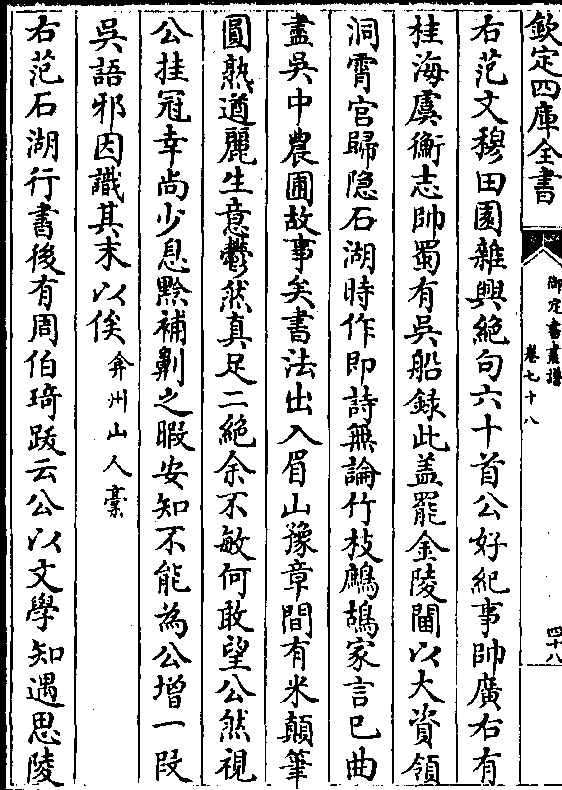 欽定四庫全書
御定書畫譜
卷七十八
四十八
右范文穆田園雜興絕句六十首公好紀事帥廣右有
桂海虞衡志帥蜀有吳船錄此盖罷金陵閫以大資領
洞霄宫歸隐石湖時作即詩無論竹枝鷓鴣家言已曲
盡吳中農圃故事矣書法出入眉山豫章間有米顛筆
圓熟遒麗生意鬱然真足二絶余不敏何敢望公然視
公挂冠幸尚少息黥補劓之暇安知不能為公增一段
吳語邪因識其末以俟弇州山人藁
右范石湖行書後有周伯琦跋云公以文學知遇思陵